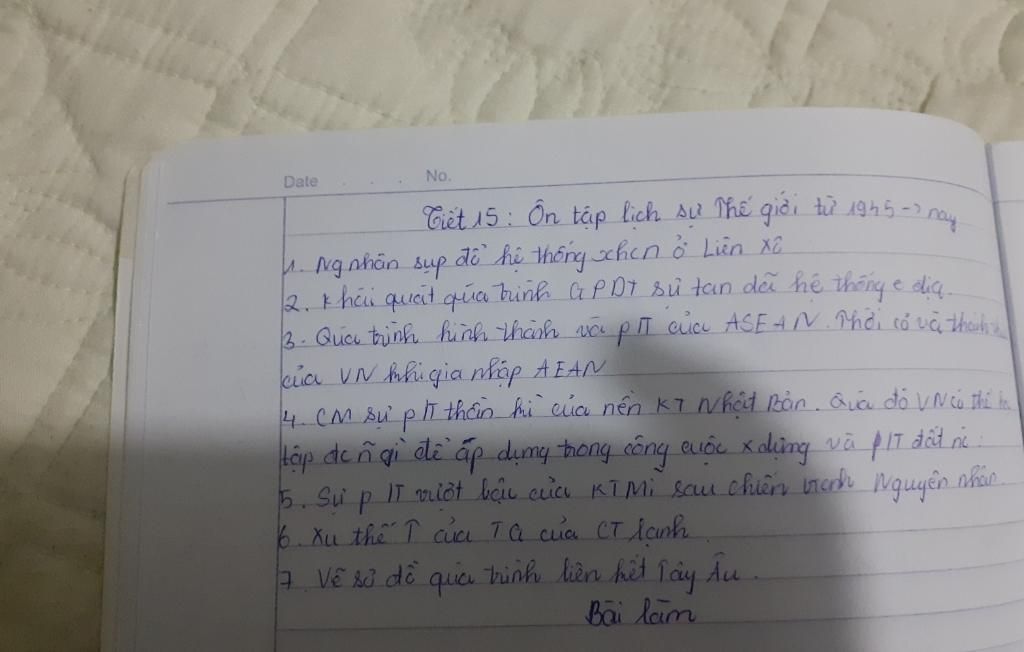 Date . . . No.
Tiết 15: Ôn tập lịch sự Thế giới từ 1945 -> nay
1. Ng nhân sụp đổ hệ thống xhcn ở Liên Xô
2. Khái quát qúa trình GPDT sự tan dã hệ thống e địa.
3. Qúa trình hình thành và pIT của ASEAN. Thời có và thách
của VN khi gia nhập AEAN
4. CM sự pIT thần kì của nền KT Nhật Bản. Qua đó VN có thể
tập đc ñ gì để áp dụng trong công cuộc x dựng và pIT đất nc:
5. Sự pIT vượt bậc của KT Mĩ sau chiến tranh Nguyên nhân
6. Xu thế T của TG của CT lạnh
7. Vẽ sơ đồ qúa trình liên kết Tây Âu.
Bài làm